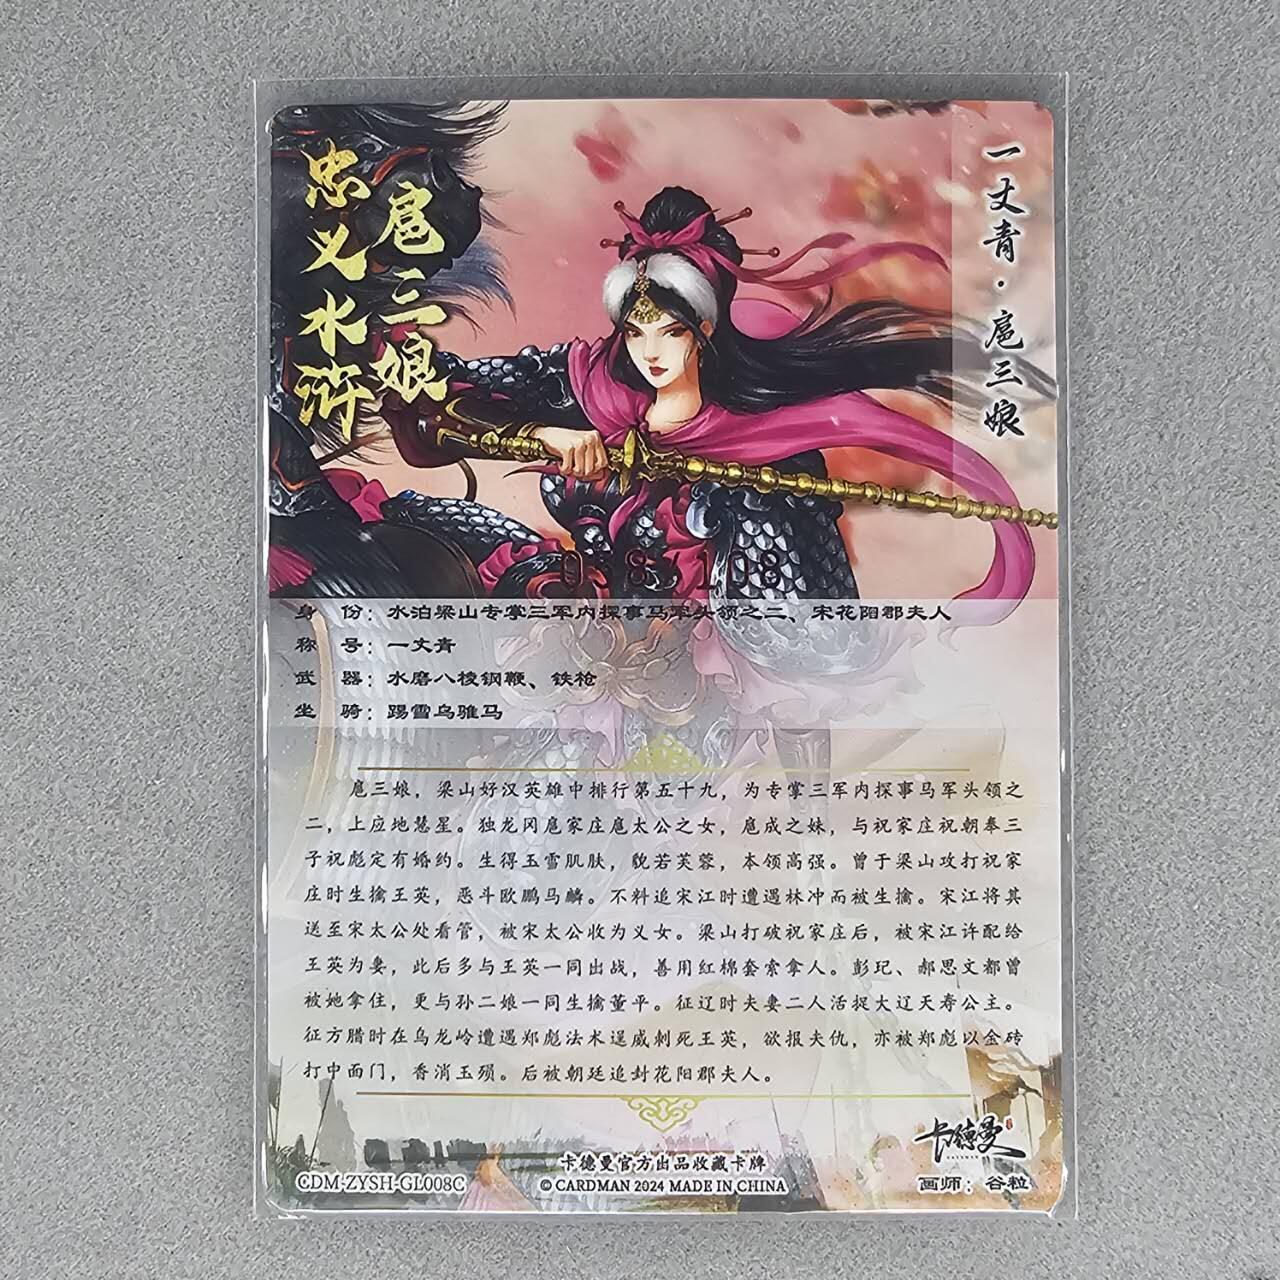 忠义水浒
扈三娘
一丈青·扈三娘
身 份：水泊梁山专掌三军内探事马军头领之二、宋花阳郡夫人
称 号：一丈青
武 器：水磨八棱钢鞭、铁枪
坐 骑：踢雪乌骓马
扈三娘，梁山好汉英雄中排行第五十九，为专掌三军内探事马军头领之
二，上应地慧星。独龙冈扈家庄扈太公之女，扈成之妹，与祝家庄祝朝奉三
子祝彪定有婚约。生得玉雪肌肤，貌若芙蓉，本领高强。曾于梁山攻打祝家
庄时生擒王英，恶斗欧鹏马麟。不料追宋江时遭遇林冲而被生擒。宋江将其
送至宋太公处看管，被宋太公收为义女。梁山打破祝家庄后，被宋江许配给
王英为妻，此后多与王英一同出战，善用红棉套索拿人。彭玘、郝思文都曾
被她拿住，更与孙二娘一同生擒董平。征辽时夫妻二人活捉大辽天寿公主。
征方腊时在乌龙岭遭遇郑彪法术逞威刺死王英，欲报夫仇，亦被郑彪以金砖
打中面门，香消玉殒。后被朝廷追封花阳郡夫人。
卡德曼
卡德曼官方出品收藏卡牌
CDM-ZYSH-GL008C
© CARDMAN 2024 MADE IN CHINA
画师：谷粒